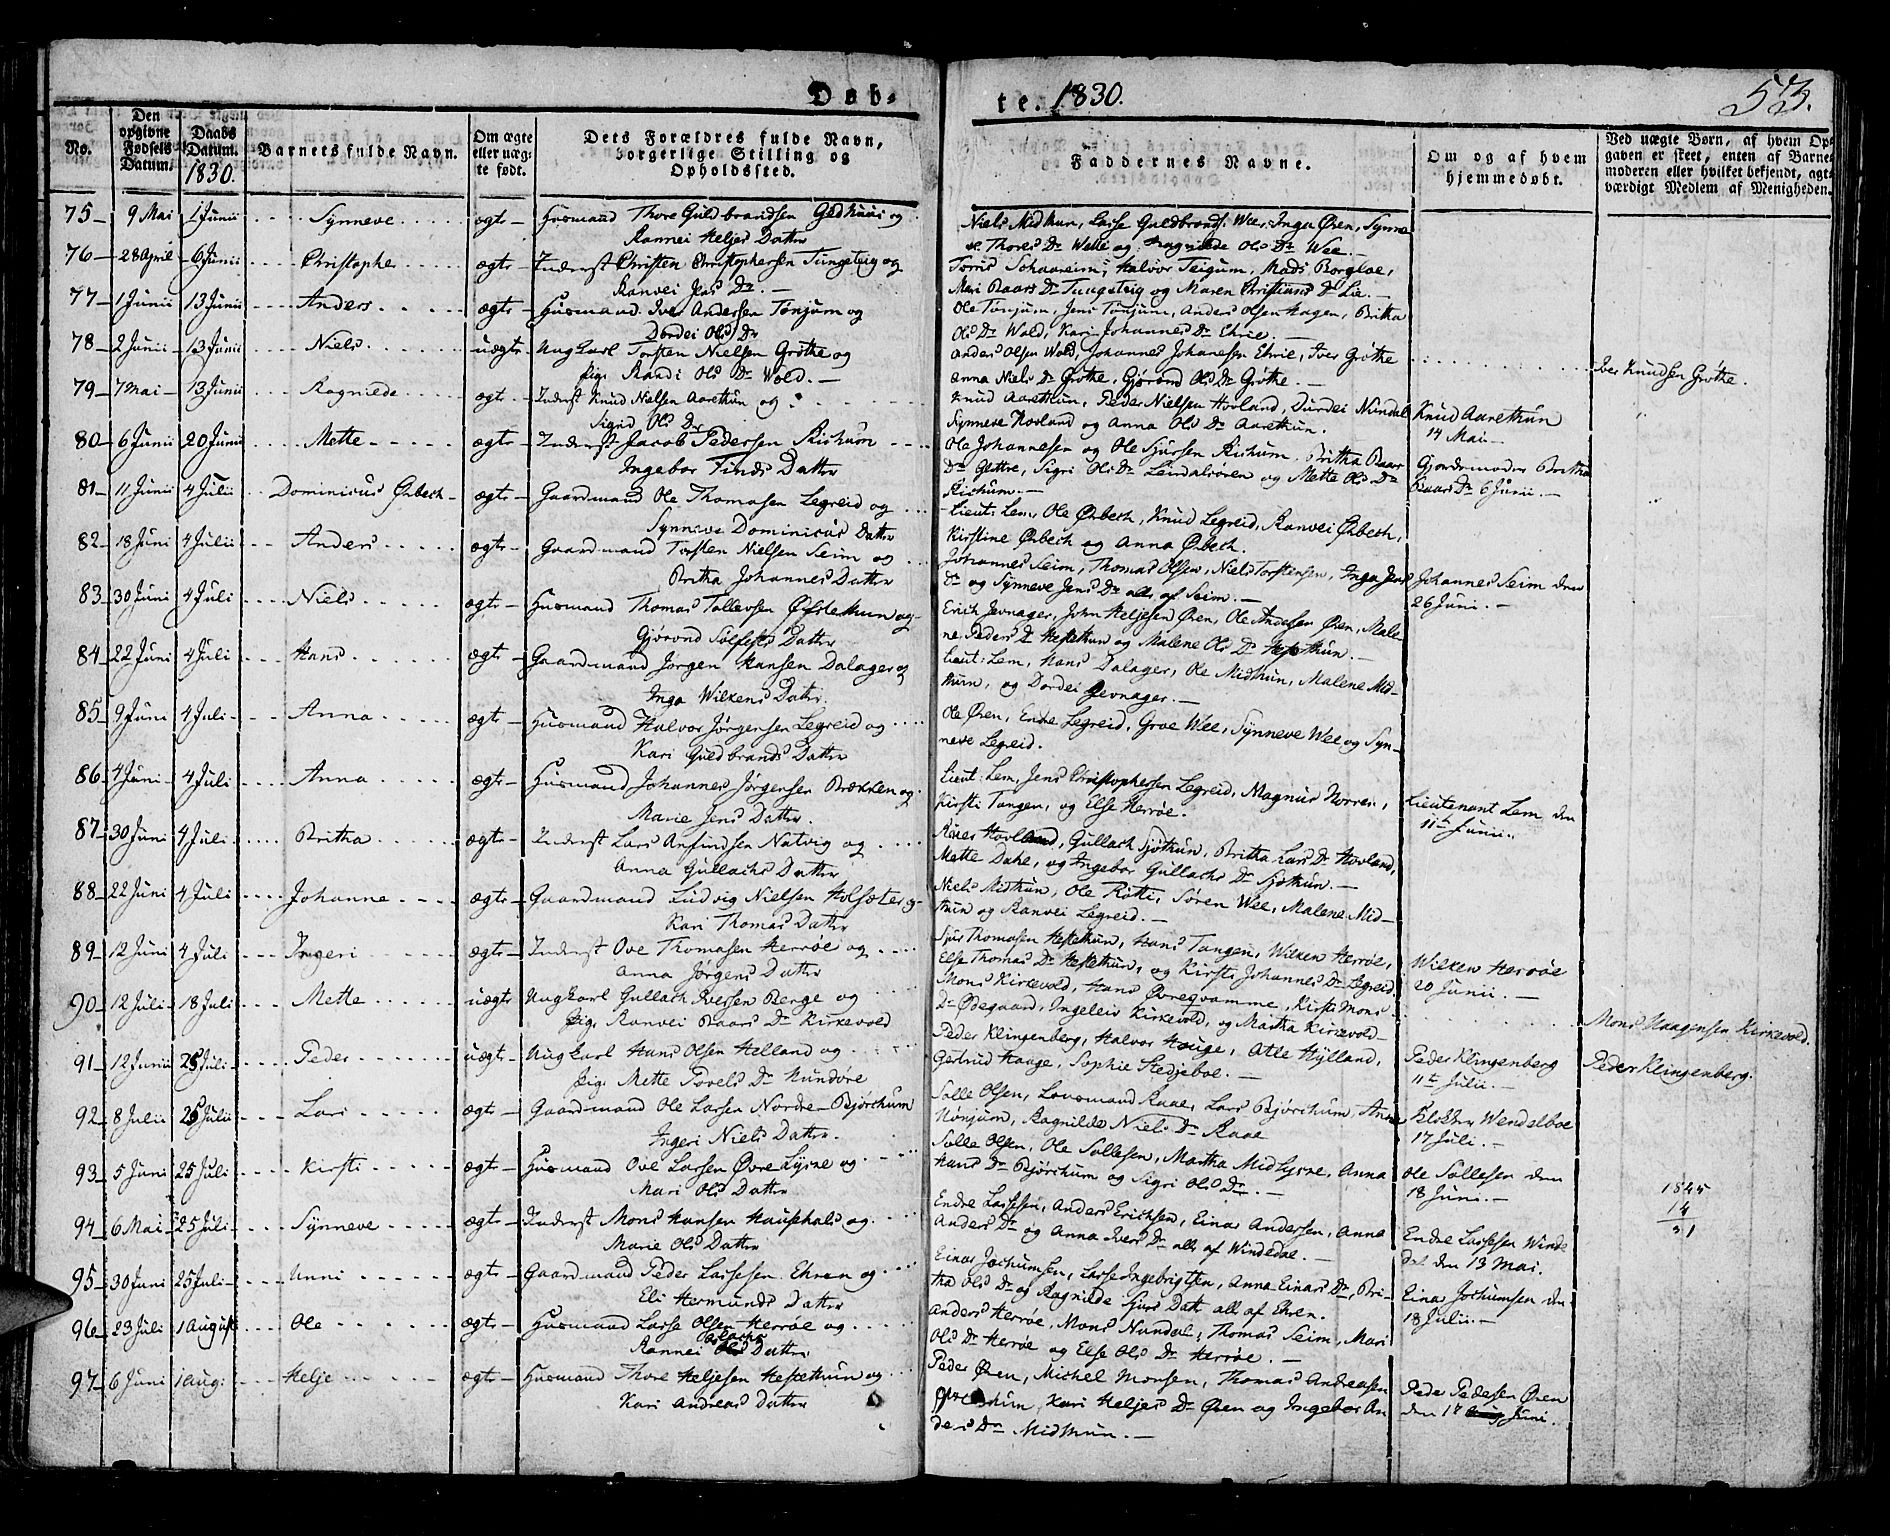 Døb-
te. 1830.
53.
No.
Den opgivne Fødsels Datum.
Daabs Datum. 1830.
Barnets fulde Navn.
Om ægte eller uægte født.
Dets Forældres fulde Navn, borgerlige Stilling og Opholdssted.
Faddernes Navne.
Om og af hvem hjemmedøbt.
Ved uægte Børn, af hvem Opgaven er skeet, enten af Barnemoderen eller hvilket bekjendt, agtværdigt Medlem af Menigheden.
75 9 Mai 1 Junii Synneve ægte Husmand Thore Guldbrandsen Gedhuus og
Rannei Heljes Datter
Niels Midthun, Lasse Guldbrands: Wee, Inga Øren, Synne
ve Thores Dr Welle og Ragnilde Ols Dr Wee.
76 28 April 6 Junii Christopher ægte Inderst Christen Christophersen Tungeteig og
Ranvei Jens Dr.
Torris Schaareim, Halvor Teigum, Mads Borgloe,
Mari Baars Dr Tungeteig og Maren Christians Dr Lie.
77 1 Junii 13 Junii Anders ægte Husmand Iver Andersen Tønjum og
Dordei Ols Dr
Ole Tønjum, Jens Tønjum, Anders Olsen Hagen, Britha
Ols Dr Wold, Kari Johannes Dr Ehrie.
78 2 Junii 13 Junii Niels uægte Ungkarl Torsten Nielsen Grøthe og
Pig. Randi Ols Dr Wold.
Anders Olsen Wold, Johannes Johanesen Ehrie, Iver Grøthe
Anna Niels Dr Grøthe, Gjørond Ols Dr Grøthe.
Iver Knudsen Grøthe.
79 7 Mai 13 Junii Ragnilde ægte Inderst Knud Nielsen Aarethun og
Sigrid Ols Dr
Knud Aarethun, Peder Nielsen Hovland, Durdei Nundal
Synneve Hovland og Anna Ols Dr Aarethun.
Knud Aarethun
14 Mai
80 6 Junii 20 Junii Mette ægte Inderst Jacob Pedersen Rishum
Ingebor Finds Datter
Ole Johannesen og Ole Sjursen Rishum. Britha Baar
Dr Glettre, Sigri Ols Dr Leirdalsøren og Mette Ols Dr
Rishum.
Gjordemoder Britha
Baars Dr 6 Junii.
81 11 Junii 4 Julii Dominicus Ørbech ægte Gaardmand Ole Thomasen Legreid og
Synneve Dominicus Datter
Lieut: Lem, Ole Ørbech, Knud Legreid, Ranvei Ørbech,
Kirstine Ørbech og Anna Ørbech.
82 18 Juni 4 Julii Anders ægte Gaardmand Torsten Nielsen Seim og
Britha Johannes Datter
Johannes Seim, Thomas Olsen, Niels Torstensen, Inga Jens
Dr og Synneve Jens Dr alle af Seim.
Johannes Seim den
26 Juni.
83 30 Juni 4 Juli Niels ægte Husmand Thomas Tollevsen Øfstethun og
Gjørond Solfests Datter
Erich Jevnager, John Heljesen Øren, Ole Andersen Øren, Male-
ne Peders Dr Hestethun og Malene Ols Dr Hestethun.
84 22 Juni 4 Juli Hans ægte Gaardmand Jørgen Hansen Dalager og
Inga Wilkens Datter.
Lieut: Lem, Hans Dalager, Ole Midthun, Malene Mid-
thun, og Dordei Jevnager.
85 9 Juni 4 Juli Anna ægte Husmand Halvor Jørgensen Legreid og
Kari Guldbrands Datter
Ole Øren, Endre Legreid, Groe Wee, Synneve Wee og Syn-
neve Legreid.
86 4 Juni 4 Juli Anna ægte Husmand Johannes Jørgensen Brækken og
Marie Jens Datter.
Lieut: Lem, Jens Christophersen Legreid, Magnus Norrei,
Kirsti Tangen, og Else Herrøe.
Lieutenant Lem den
11te Junii.
87 30 Juni 4 Juli Britha ægte Inderst Lars Anfindsen Natvig og
Anna Gullachs Datter
Hovland, Gullach Sjøthun, Britha Lars Dr Hovland,
Mette Dahe, og Ingebor Gullachs Dr Sjøthun.
88 22 Juni 4 Juli Johanne ægte Gaardmand Ludvig Nielsen Holsæter og
Kari Thomas Datter
Niels Midthun, Ole Rotti, Søren Wee, Malene Mid-
thun og Ranvei Legreid.
89 12 Juni 4 Juli Ingeri ægte Inderst Ove Thomasen Herrøe og
Anna Jørgens Datter
Sjur Thomasen Hestethun, Hans Tangen, Wilken Herrøe,
Else Thomas Dr Hestethun, og Kirsti Johannes Dr Legreid.
Wilken Herrøe
20 Junii.
90 12 Juli 18 Juli Mette uægte Ungkarl Gullach Iversen Berge og
Pig. Ranvei Baars Dr Kirkevold
Mons Kirkevold, Hans Øvreqvamme, Kirsti Mons
Dr Ødegaard, Ingeleiv Kirkevold, og Martha Kirkevold
Mons Haagensen Kirkevold.
91 12 Junii 25 Juli Peder uægte Ungkarl Hans Olsen Helland og
Pig. Mette Povels Dr Hundøre
Peder Klingenberg, Halvor Hauge, Atle Hylland,
Gertrud Haage, Sophie Stedjeboe.
Peder Klingenberg
11te Julii.
Peder Klingenberg.
92 8 Julii 25 Julii Lars ægte Gaardmand Ole Larsen Nordre-Bjørchum
Ingeri Niels Datter.
Solle Olsen, Lensmand Raae, Lars Bjørchum, Anne
Hønjum, Ragnilde Niels Dr Raae
Klokker Wendelboe
17 Juli.
93 5 Juni 25 Juli Kirsti ægte Husmand Ove Larsen Øvre Lysne og
Mari Ols Datter
Solle Olsen, Ole Sollesen, Martha Midlysne, Anna
Hans Dr Bjørchum og Sigri Ols Dr.
Ole Sollesen den
18 Juni.
1845
14
31
94 6 Mai 25 Juli Synneve ægte Inderst Mons Hansen Haugehals og
Marie Ols Datter
Endre Lassesen, Anders Erichsen, Einar Andersen, Anna
Anders Dr og Anna Ivers Dr alle af Windedal.
Endre Lassesen Winde
dal den 13 Mai.
95 30 Juni 25 Juli Unni ægte Gaardmand Peder Lassesen Ehren og
Eli Hermunds Datter
Einar Jochumsen, Lasse Ingebrigtsen, Anna Einars Dr, Bri-
tha Ols Dr og Ragnilde Sjurs Datt alle af Ehren.
Einar Jochumsen den
18 Julii.
96 23 Juli 1 August Ole ægte Husmand Lasse Olsen Herrøe og
Rannei Datter
Anders Herrøe, Mons Nundal, Thomas Seim, Mari
Ols Dr Herrøe og Else Ols Dr Herrøe.
97 6 Juni 1 Aug: Helje ægte Husmand Thore Heljesen Hestethun og
Kari Andreas Datter
Peder Øren, Michel Monsen, Thomas Andreasen
Kari Heljes Dr Øren og Ingebor An
ders Dr Midthun.
Peder Pedersen Øren
den 17 Juni.